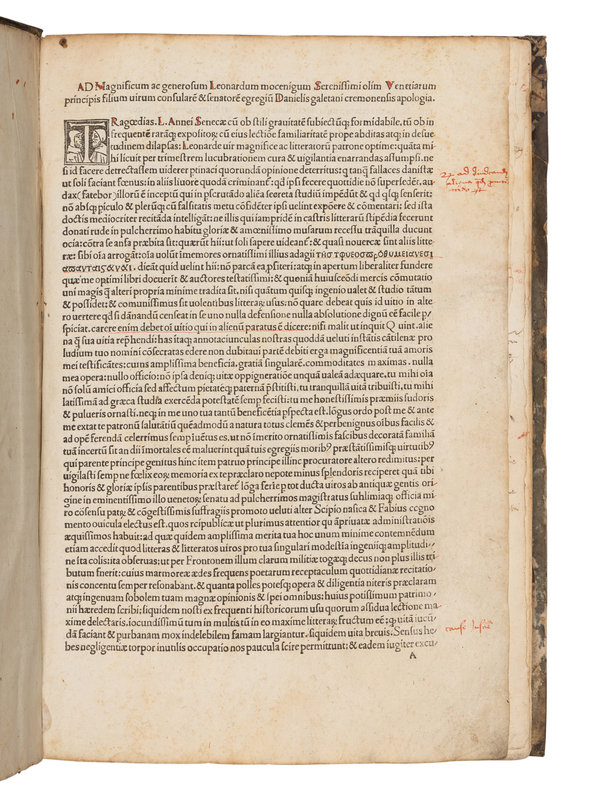 AD Magnificum ac generosum Leonardum mocenigum Serenissimi olim Venetiarum
principis filium uirum consularē & senatorē egregiū Danielis gaietani cremonensis apologia.
TRagœdias. L. Annei Senecæ cū ob stili grauitatē subiectūq; formidabile, tū ob in
frequentē rarāq; expositorꝝ cū eius lectiōe familiaritatē prope abditas atq; in desue
tudinem dilapsas: Leonarde uir magnifice ac litteratorū patrone optime: quāta mi
hi licuit per trimestrem lucubrationem cura & uigilantia enarrandas assumpsi. ne
si id facere detrectastem uiderer ptinaci quorundā opinione deterritus: q tanq̄ fallaces danistæ
ut soli faciant fœnus: in aliis liuore quodā criminant̄: qd ipsi fecere quottidie nō supersedēt. au
dax (fatebor) illorū ē inceptū qui in pscrutādo aliēa secreta studiū impēdūt & qd qsq; senserit:
nō absq; piculo & plerūq; cū falsitatis metu cōfidēter ipsi uelint expōere & cōmentari: sed ista
doctis mediocriter recitāda intelligāt: ne illis qui impridē in castris litterarū stipēdia fecerunt
donati rude in pulcherrimo habitu gloriæ & amœnissimo musarum recessu trāquilla ducunt
ocia: cōtra se ansa præbita sit: quærūt hii: ut soli sapere uideant̄: & quasi nouercæ sint aliis litte-
ræ: sibi oīa arrogāt: oīa uolūt immemores ornatissimi illius adagii
dicāt quid uelint hii: nō parcā ea psiteri: atq; in apertum liberaliter fundere
quæ me optimi libri docuere & auctores testatissimi: & quoniā huiuscemōi mercis cōmutatio
uni magis q̄ alteri propria minime tradita sit. nisi quātum quisq; ingenio ualet & studio tātum
& possidet: & comunissimus sit uolentibus litteraꝝ usus: nō quare debeat quis id uitio in alte
ro uertere qd si dānandū censeat in se uno nulla defensione nulla absolutione dignū cē facile p/
spiciat. carere enim debet oī uitio qui in alienū paratus ē dicere: nisi malit ut inquit Quint. alie
na q̄ sua uitia repħendi: has itaq; annotaciunculas nostras quoddā ueluti instātis cātilenæ pro
ludium tuo nomini cōsecratas edere non dubitaui partē debiti erga magnificentiā tuā amoris
mei testificātes: cuius amplissima beneficia. gratiā singularē. commoditates maximas. nulla
mea opera: nullo officio: nō ipsa deniq; uitæ oppigneratiōe unquā ualeā adæquare, tu mihi oīa
nō solū amici officia sed affectum pietatēq; paternā pstitisti. tu tranquillā uitā tribuisti, tu mihi
latissimā ad græca studia exercēda potestatē semp fecisti: tu me honestissimis præmiis sudoris
& pulueris ornasti. neq; in me uno tua tantū beneficētia pspecta est. lōgus ordo post me & ante
me extat te patronū salutatiū quēadmodū a natura totus clemēs & perbenignus oībus facilis &
ad opē ferendā celerrimus semp iuētus es. ut nō imerito ornatissimis fascibus decorata familiā
tuā incertū sit an dii īmortales cē maluerint quā tuis egregiis moribꝫ præstātissimisq; uirtutibꝫ
qui parente principe genitus hinc item patruo principe illinc procuratore altero redimitus: per
uigilasti semp ne fœlix eoꝝ memoria ex te præclaro nepote minus splendoris reciperet quā tibi
honoris & gloriæ ipsis parentibus præstaret lōga serie p tot ducta uiros ab antiquæ gentis ori-
gine in eminentissimo illo uenetoꝝ senatu ad pulcherrimos magistratus suhlimiaq; officia mi
ro cōsensu patꝝ & cōgestissimis suffragiis promoto ueluti alter Scipio nasica & Fabius cogno
mento ouicula electus est. quos reipublicæ ut plurimos attentior quā priuatæ administratiōis
æquissimos habuit: ad quæ quidem amplissima merita tua hoc unum minime contemnēdum
etiam accedit quod litteras & litteratos uiros pro tua singulari modestia ingeniiq; amplitudi-
ne ita colis: ita obseruas: ut per Frontonem illum clarum militiæ togæq; decus non plus illis tri
butum fuerit: cuius marmoreæ ædes frequens poetarum receptaculum quottidianæ recitatio-
nis concentu semper resonabant. & quanta polles potesq; opera & diligentia niteris præclaram
atq; ingenuam sobolem tuam magnæ opinionis & spei omnibus: huius potissimum patrimo-
nii hæredem scribi: siquidem nosti ex frequenti historicorum usu quorum assidua lectione ma-
xime delectaris. iocundissimū tum in multis tū in eo maxime litteraꝝ fructum eē: q uitā iucū-
dā faciant & purbanam mox indelebilem famam largiantur. siquidem uita breuis. Sensus he-
bes negligentiæ torpor inutilis occupatio nos paucula scire permittunt: & eadem iugiter excu-
A